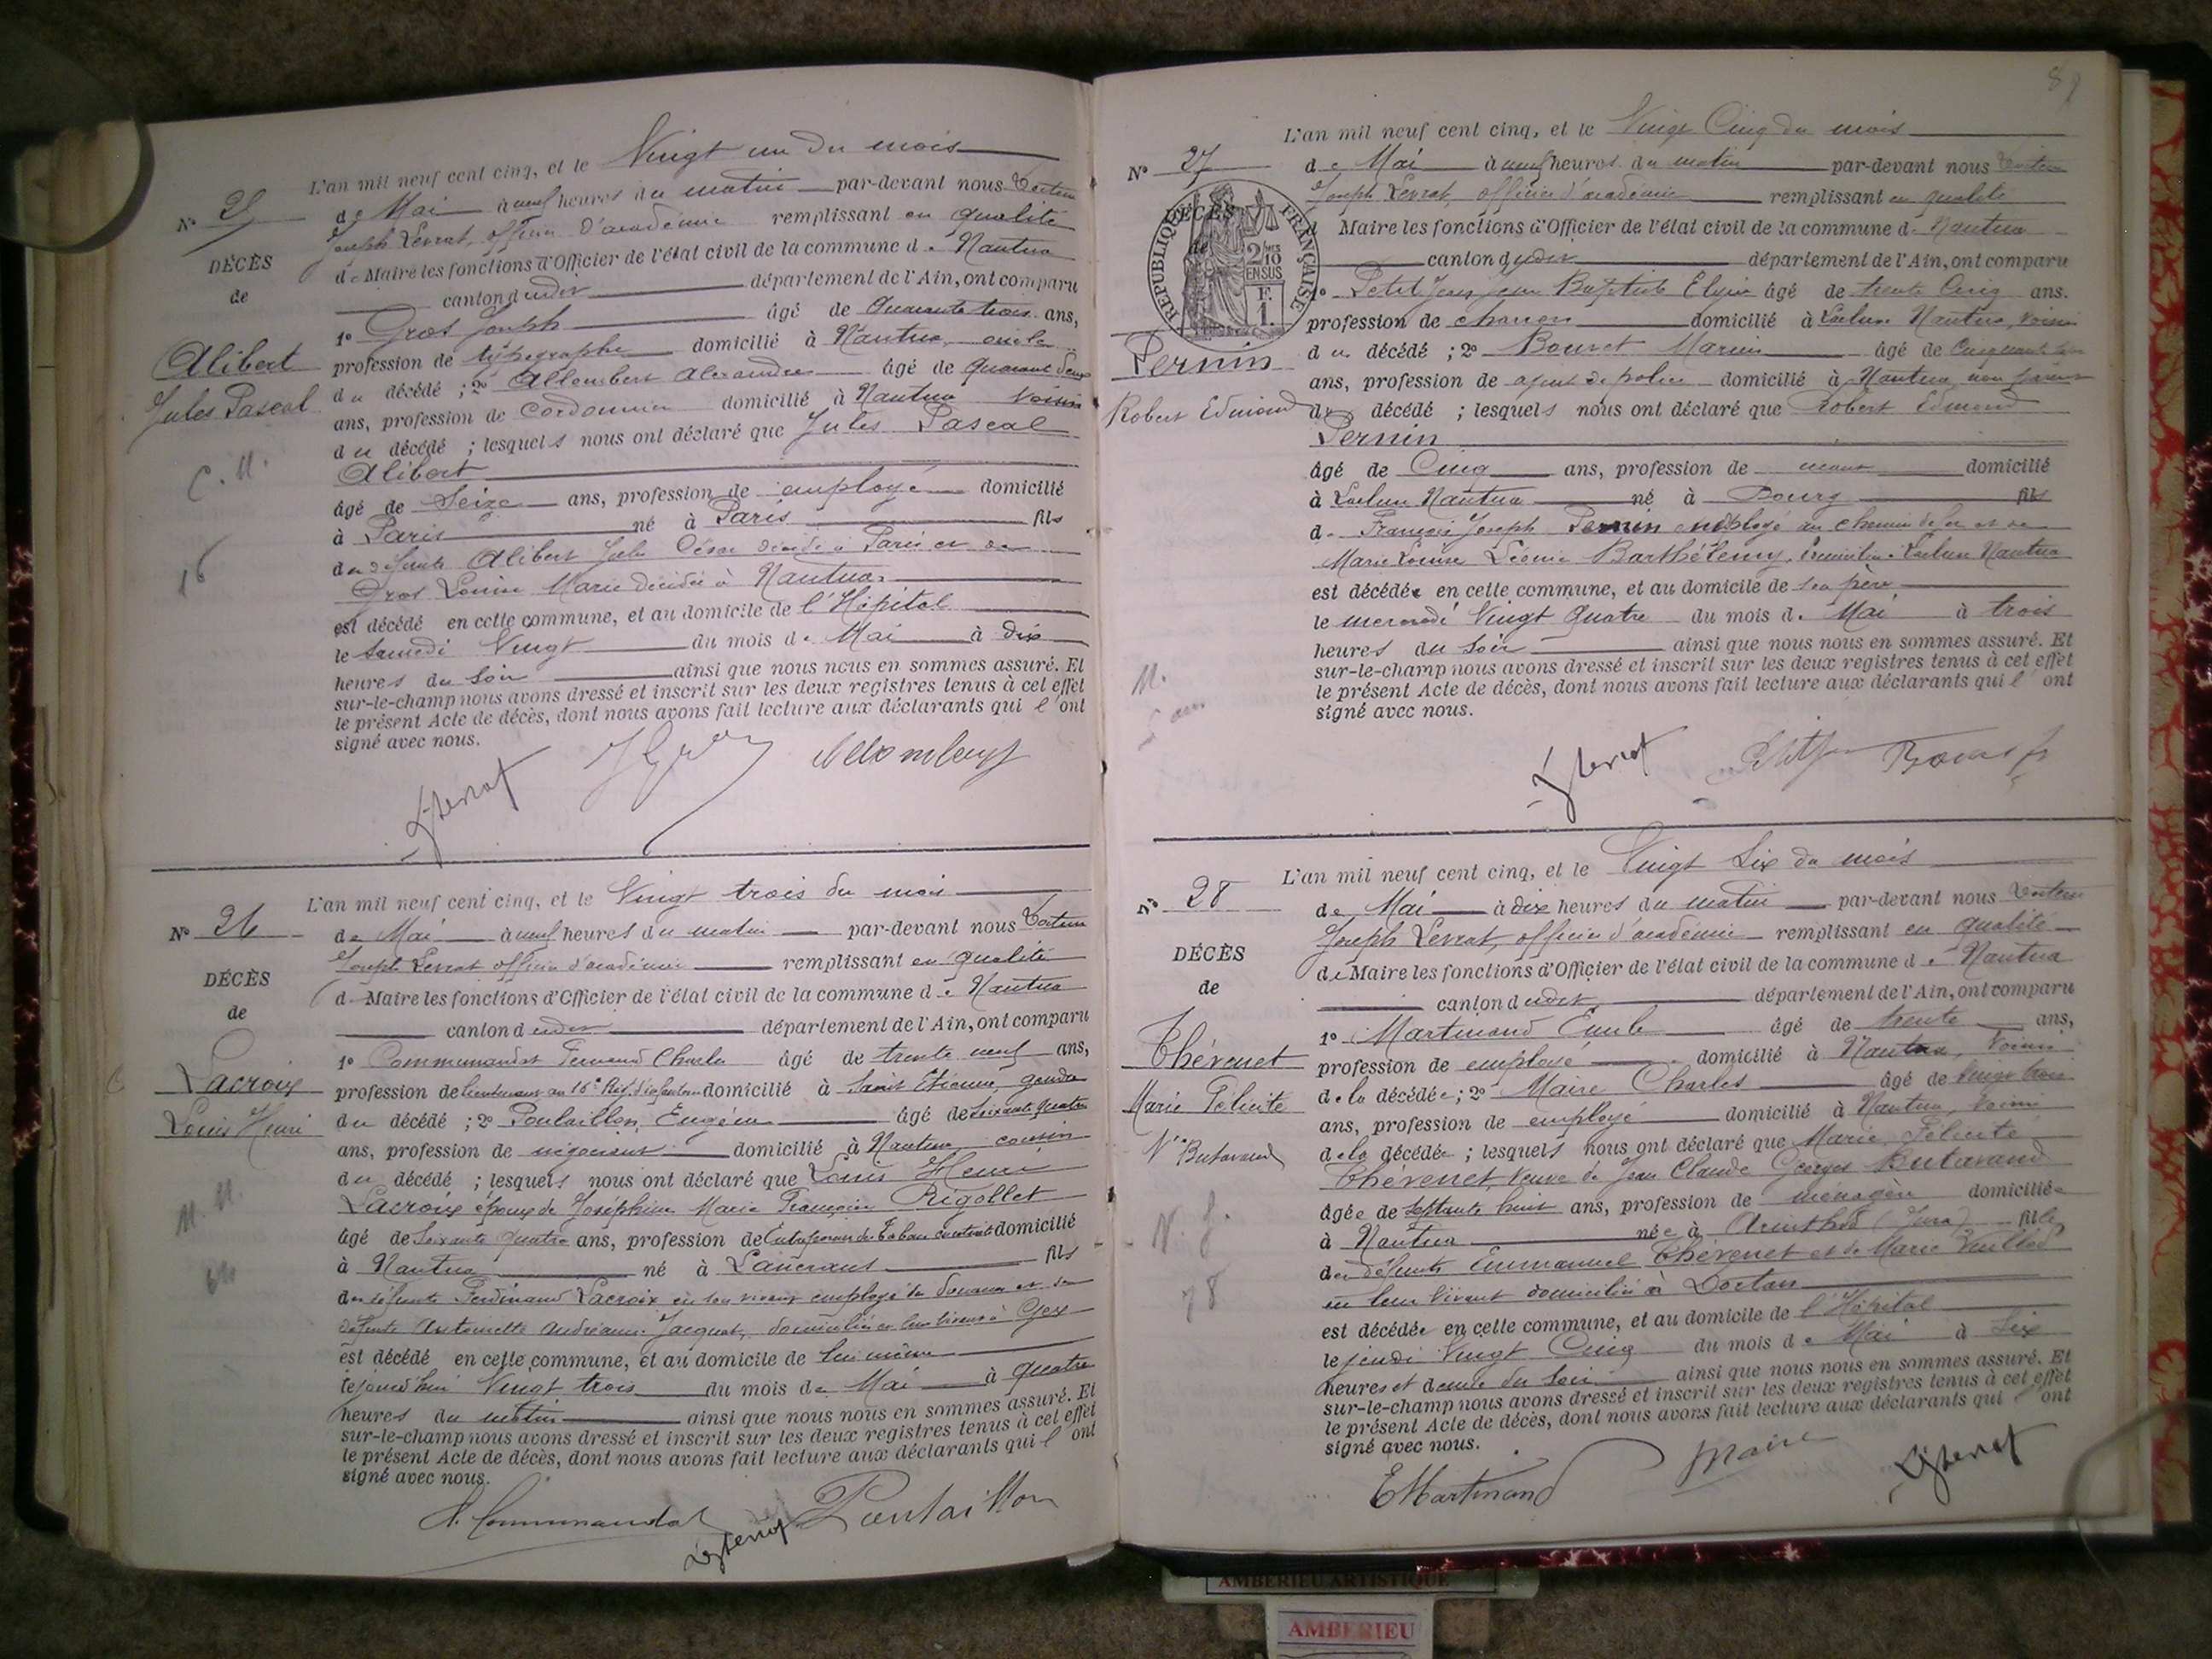 L'an mil neuf cent cinq, et le Vingt un du mois
de Mai à neuf heures du matin par-devant nous
Joseph Levrat, officier d'académie remplissant en qualité
de Maire les fonctions d'Officier de l'état civil de la commune de Nantua
canton dudit département de l'Ain, ont comparu
1° Gros Joseph âgé de quarante trois ans,
profession de typographe domicilié à Nantua, oncle
du décédé ; 2° Allombert Alexandre âgé de quarante deux
ans, profession de cordonnier domicilié à Nantua voisin
du décédé ; lesquels nous ont déclaré que Jules Pascal
Alibert
âgé de Seize ans, profession de employé domicilié
à Paris né à Paris fils
de défunts Alibert Jules César décédé à Paris et de
Gros Louise Marie décédée à Nantua
est décédé en cette commune, et au domicile de l'Hôpital
le Samedi Vingt du mois de Mai à dix
heures du Soir ainsi que nous nous en sommes assuré. Et
sur-le-champ nous avons dressé et inscrit sur les deux registres tenus à cet effet
le présent Acte de décès, dont nous avons fait lecture aux déclarants qui l'ont
signé avec nous.
N° 25
DÉCÈS
de
Alibert
Jules Pascal
16
L'an mil neuf cent cinq, et le Vingt trois du mois
de Mai à neuf heures du matin par-devant nous
Joseph Levrat officier d'académie remplissant en qualité
de Maire les fonctions d'Officier de l'état civil de la commune de Nantua
canton dudit département de l'Ain, ont comparu
1° Communandat Fernand Charles âgé de trente neuf ans,
profession de lieutenant au 16e Rég. d'infanterie domicilié à Saint Etienne, gendre
du décédé ; 2° Poulaillon Eugène âgé de Soixante quatre
ans, profession de négociant domicilié à Nantua cousin
du décédé ; lesquels nous ont déclaré que Louis Henri
Lacroix époux de Joséphine Marie Françoise Rigollet
âgé de Soixante quatre ans, profession de Entreposeur de Tabacs domicilié
à Nantua né à Lancrans fils
de défunts Ferdinand Lacroix en son vivant employé des douanes et de
défunte Antoinette Jacquet, domiciliés en leur vivant à Gex
est décédé en cette commune, et au domicile de lui même
le jourd'hui Vingt trois du mois de Mai à quatre
heures du matin ainsi que nous nous en sommes assuré. Et
sur-le-champ nous avons dressé et inscrit sur les deux registres tenus à cet effet
le présent Acte de décès, dont nous avons fait lecture aux déclarants qui l'ont
signé avec nous.
N° 26
DÉCÈS
de
Lacroix
Louis Henri
Poulaillon
L'an mil neuf cent cinq, et le Vingt Cinq du mois
de Mai à neuf heures du matin par-devant nous
Joseph Levrat, officier d'académie remplissant en qualité
Maire les fonctions d'Officier de l'état civil de la commune de Nantua
canton dudit département de l'Ain, ont comparu
1° Petit Jean Baptiste âgé de trente Cinq ans.
profession de domicilié à Nantua, voisin
du décédé ; 2° Bouvet Marin âgé de
ans, profession de agent de police domicilié à Nantua, non parent
du décédé ; lesquels nous ont déclaré que Robert Edmond
Pernin
âgé de Cinq ans, profession de domicilié
à Nantua né à Bourg fils
de François Joseph Pernin employé au chemin de fer et de
Marie Louise Léonie Barthélemy, Nantua
est décédé en cette commune, et au domicile de son père
le mercredi Vingt quatre du mois de Mai à trois
heures du Soir ainsi que nous nous en sommes assuré. Et
sur-le-champ nous avons dressé et inscrit sur les deux registres tenus à cet effet
le présent Acte de décès, dont nous avons fait lecture aux déclarants qui l'ont
signé avec nous.
N° 27
DÉCÈS
de
RÉPUBLIQUE FRANÇAISE
2/10 EN SUS
F. 1.
Pernin
Robert Edmond
M.
5 ans
L'an mil neuf cent cinq, et le Vingt Six du mois
de Mai à dix heures du matin par-devant nous
Joseph Levrat, officier d'académie remplissant en qualité
de Maire les fonctions d'Officier de l'état civil de la commune de Nantua
canton dudit département de l'Ain, ont comparu
1° Martinand Emile âgé de trente ans,
profession de employé domicilié à Nantua, voisin
de la décédée ; 2° Maire Charles âgé de vingt trois
ans, profession de employé domicilié à Nantua, voisin
de la décédée ; lesquels nous ont déclaré que Marie Félicité
Thévenet, Veuve de Jean Claude Georges Butavand
âgée de Septante huit ans, profession de ménagère domiciliée
à Nantua née à Arinthod (Jura) fille
de défunts Emmanuel Thévenet et de Marie Vuillod
en leur vivant domiciliés à Dortan
est décédée en cette commune, et au domicile de l'Hôpital
le jeudi Vingt Cinq du mois de Mai à Six
heures et demie du Soir ainsi que nous nous en sommes assuré. Et
sur-le-champ nous avons dressé et inscrit sur les deux registres tenus à cet effet
le présent Acte de décès, dont nous avons fait lecture aux déclarants qui l'ont
signé avec nous.
N° 28
DÉCÈS
de
Thévenet
Marie Félicité
Ve Butavand
78
EMartinand
Maire
AMBERIEU ARTISTIQUE
AMBERIEU